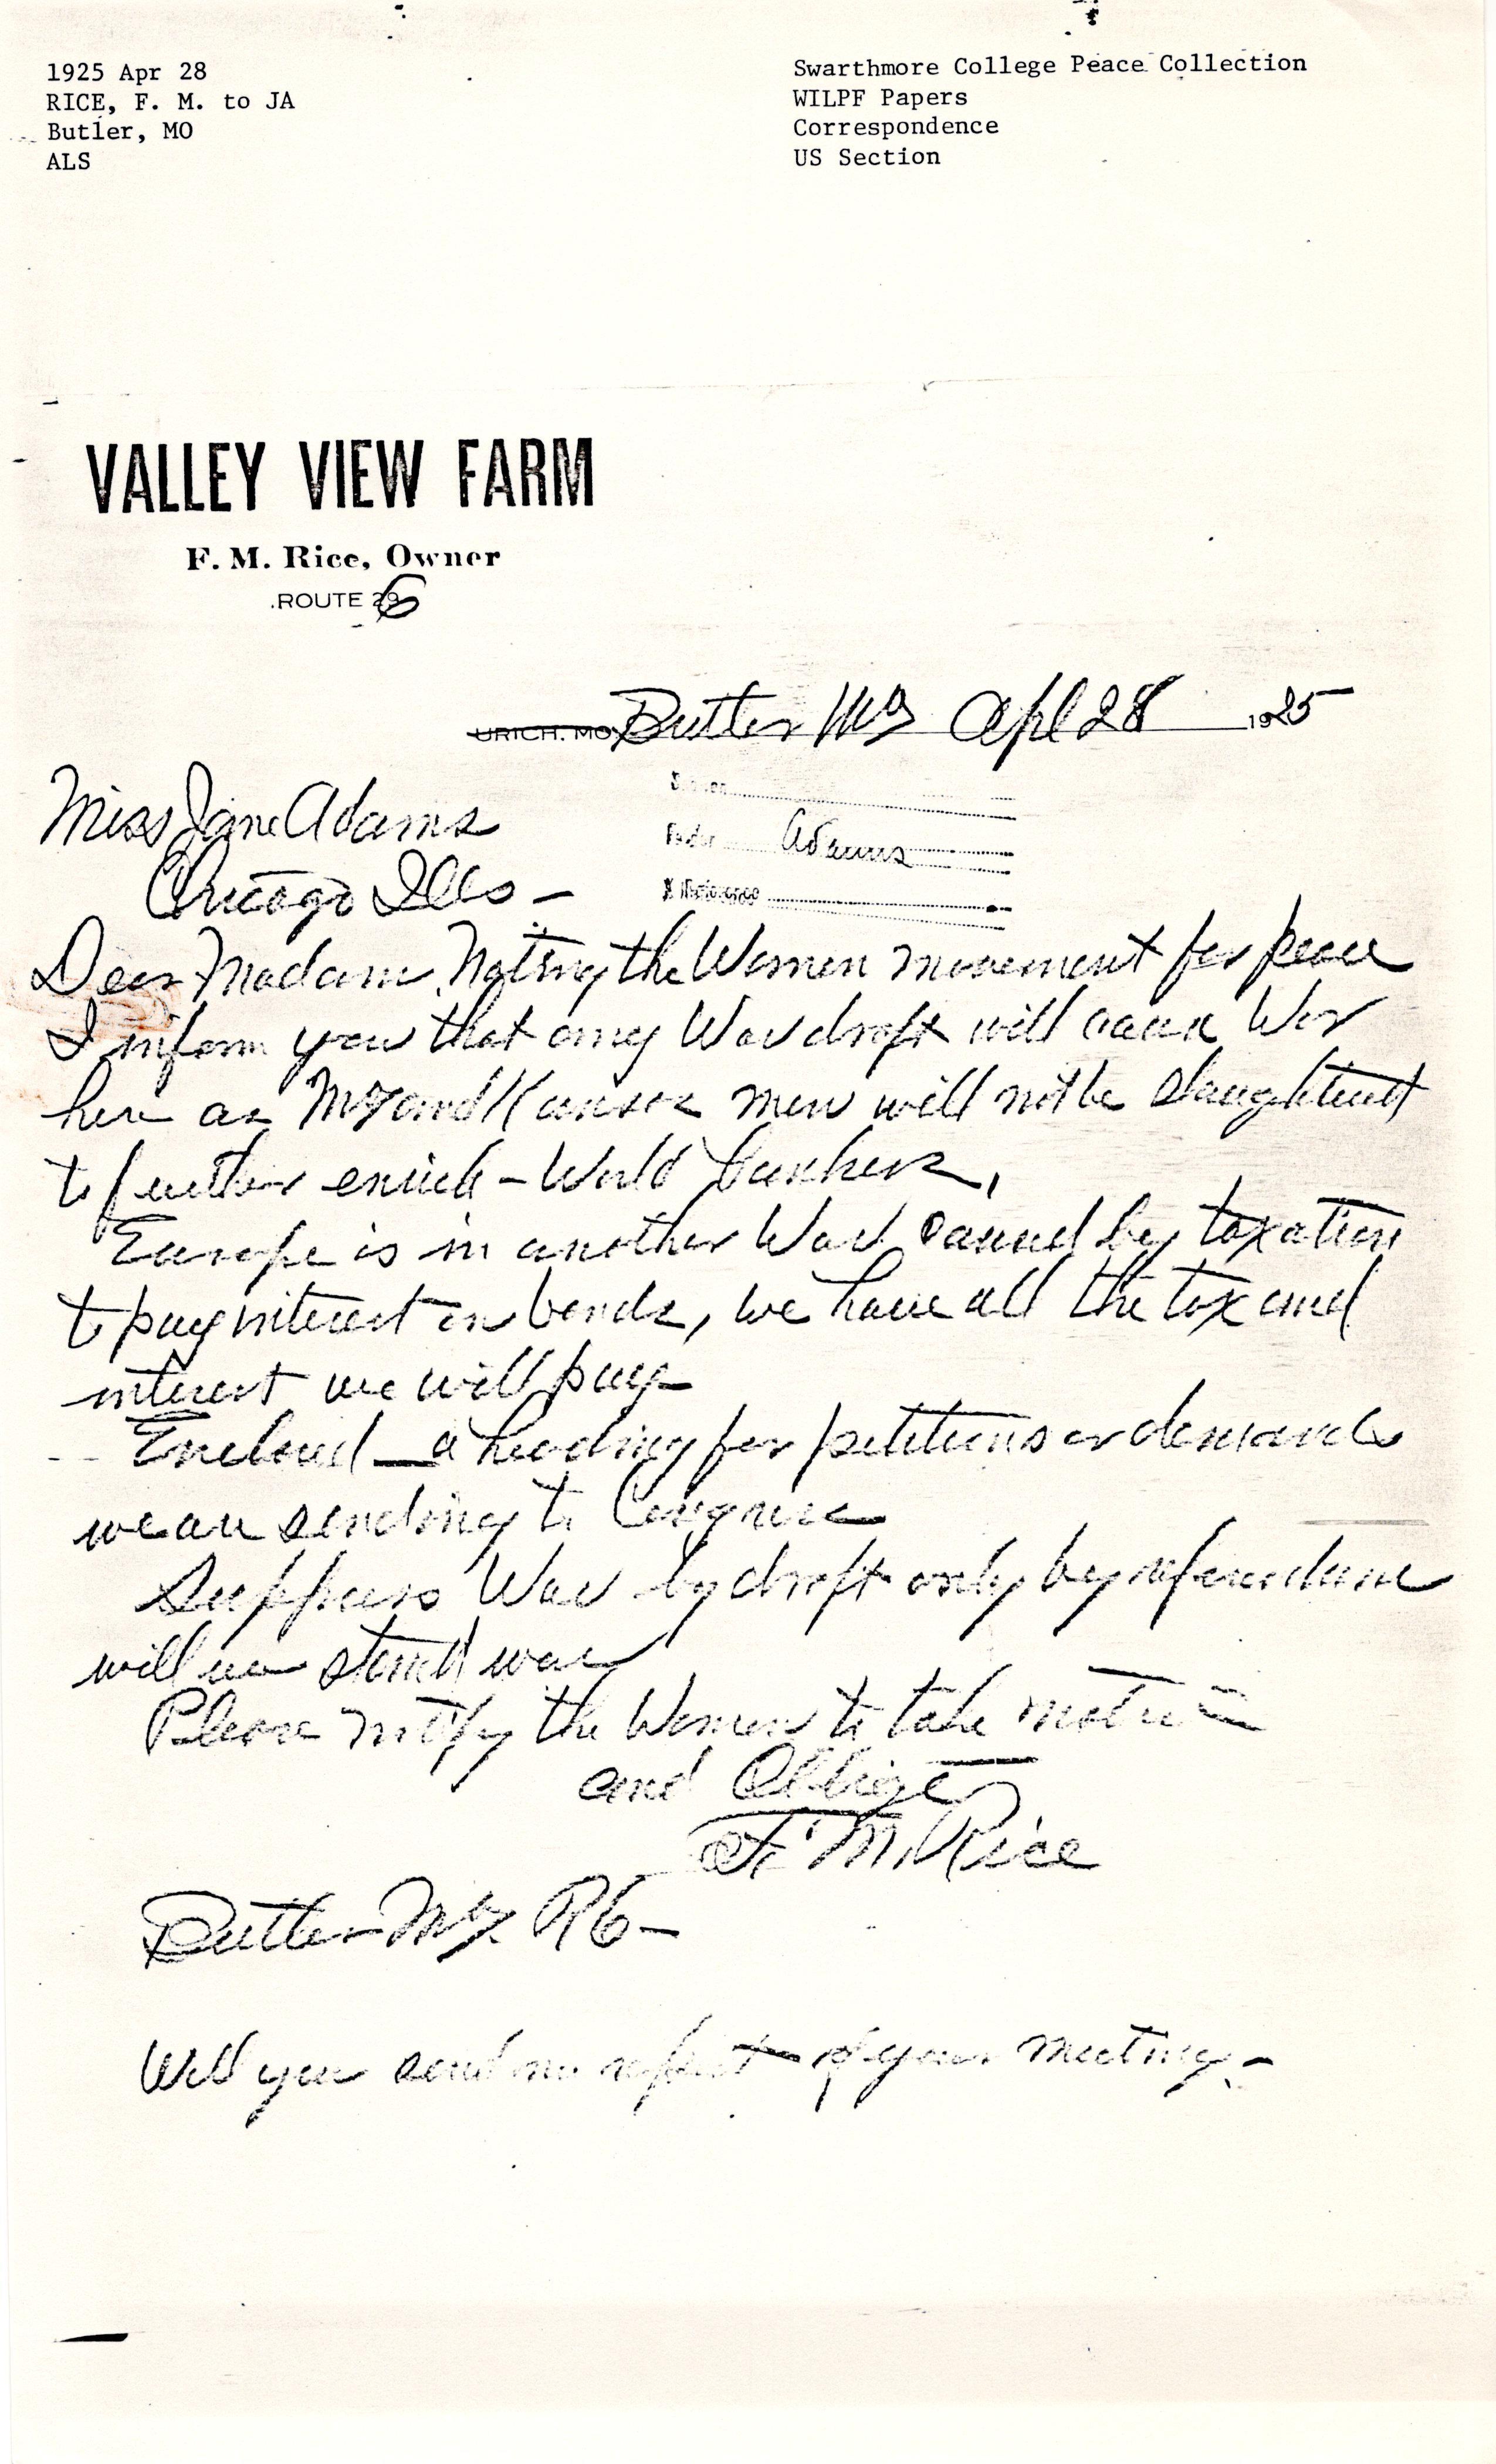 1925 Apr 28
RICE, F. M. to JA
Butler, MO
ALS
Swarthmore College Peace Collection
WILPF Papers
Correspondence
US Section
VALLEY VIEW FARM
F. M. Rice, Owner
ROUTE 6
URICH. MO. Butler Mo Apl 28 1925
Miss Jane Adams
Adams
X Reference
Chicago Ills —
Dear Madam. Noting the Women movement for peace
I inform you that any War draft will cause War
here as Mo and Kansas men will not be slaughtered
to further enrich – World bankers,
Europe is in another War caused by taxation
to pay interest on bonds, we have all the tax and
interest we will pay
Enclosed a heading for petitions or demands
we are sending to Congress
Suppress War by draft only by referendum
will we stand war
Please notify the Women to take notice
and Oblige
F. M. Rice
Butler Mo. R6 —
Will you send me report of your meeting. –